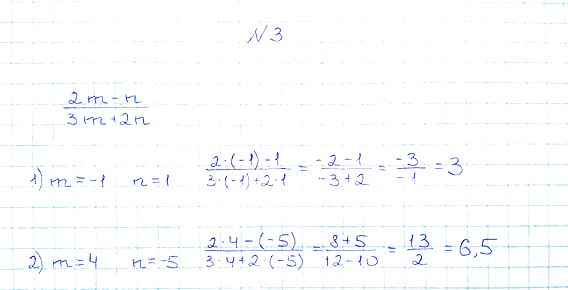 N 3
(2m-n)/(3m+2n)
1) m=-1 n=1 (2·(-1)-1)/(3·(-1)+2·1) = (-2-1)/(-3+2) = (-3)/(-1) = 3
2) m=4 n=-5 (2·4-(-5))/(3·4+2·(-5)) = (8+5)/(12-10) = 13/2 = 6,5